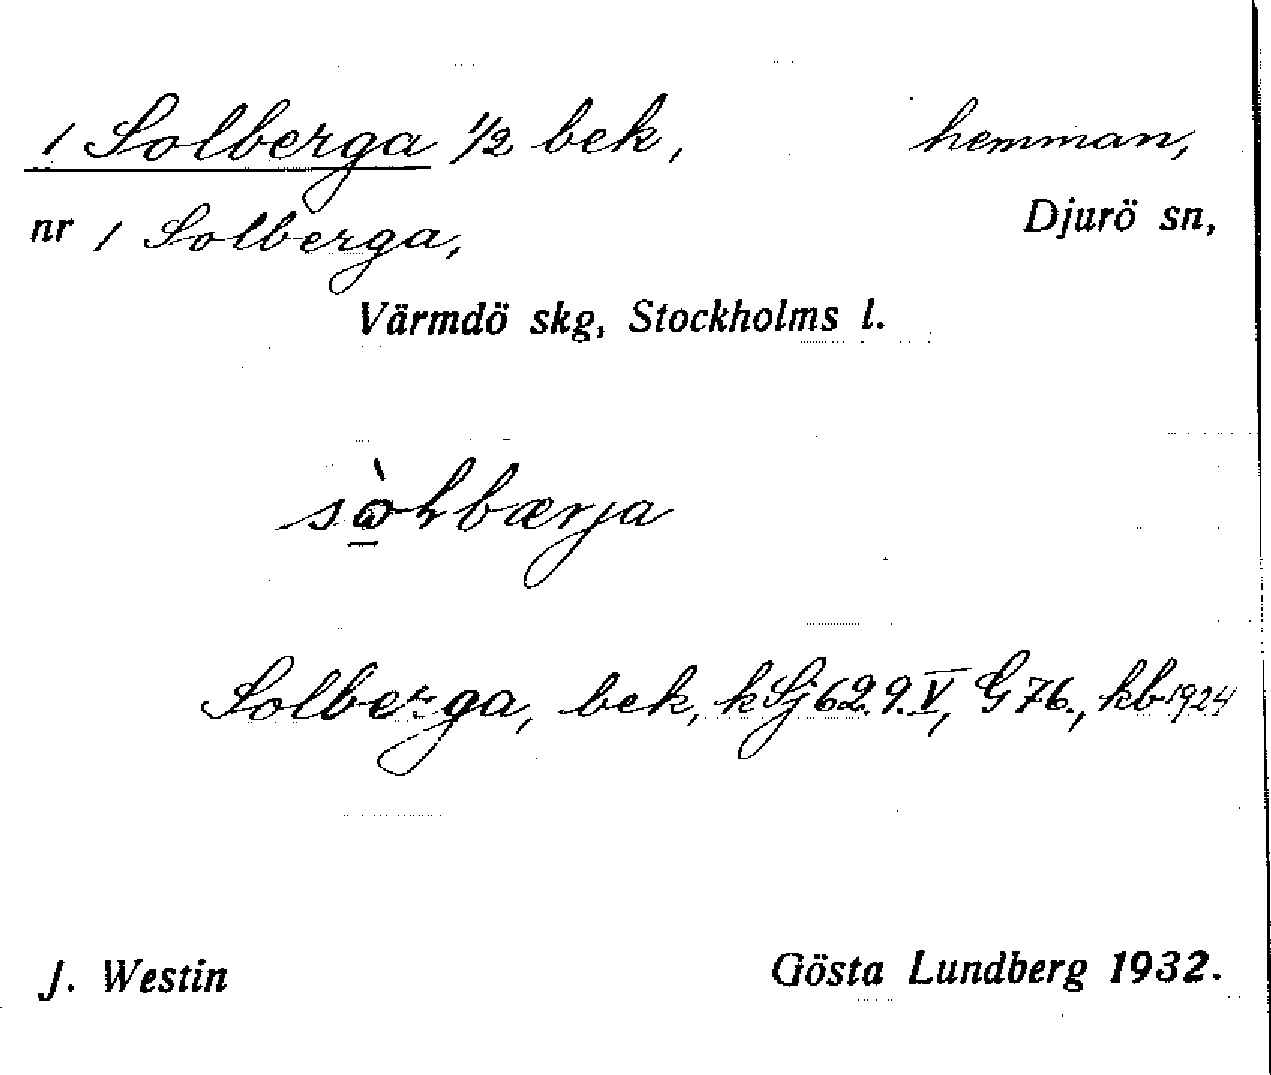 1 Solberga 1/2 bek, hemman,
nr 1 Solberga, Djurö sn,
Värmdö skg, Stockholms l.
Solberga, bek, k Sj 62.9.V, G 76., kb 1924
J. Westin Gösta Lundberg 1932.